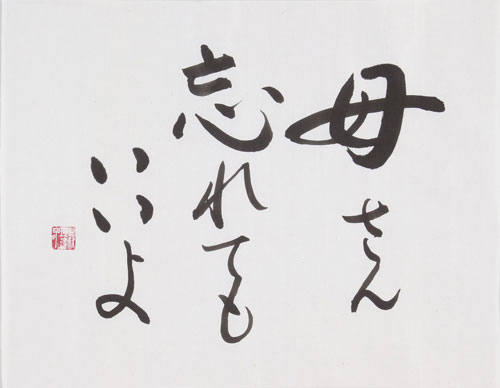 母さん
忘れても
いいよ